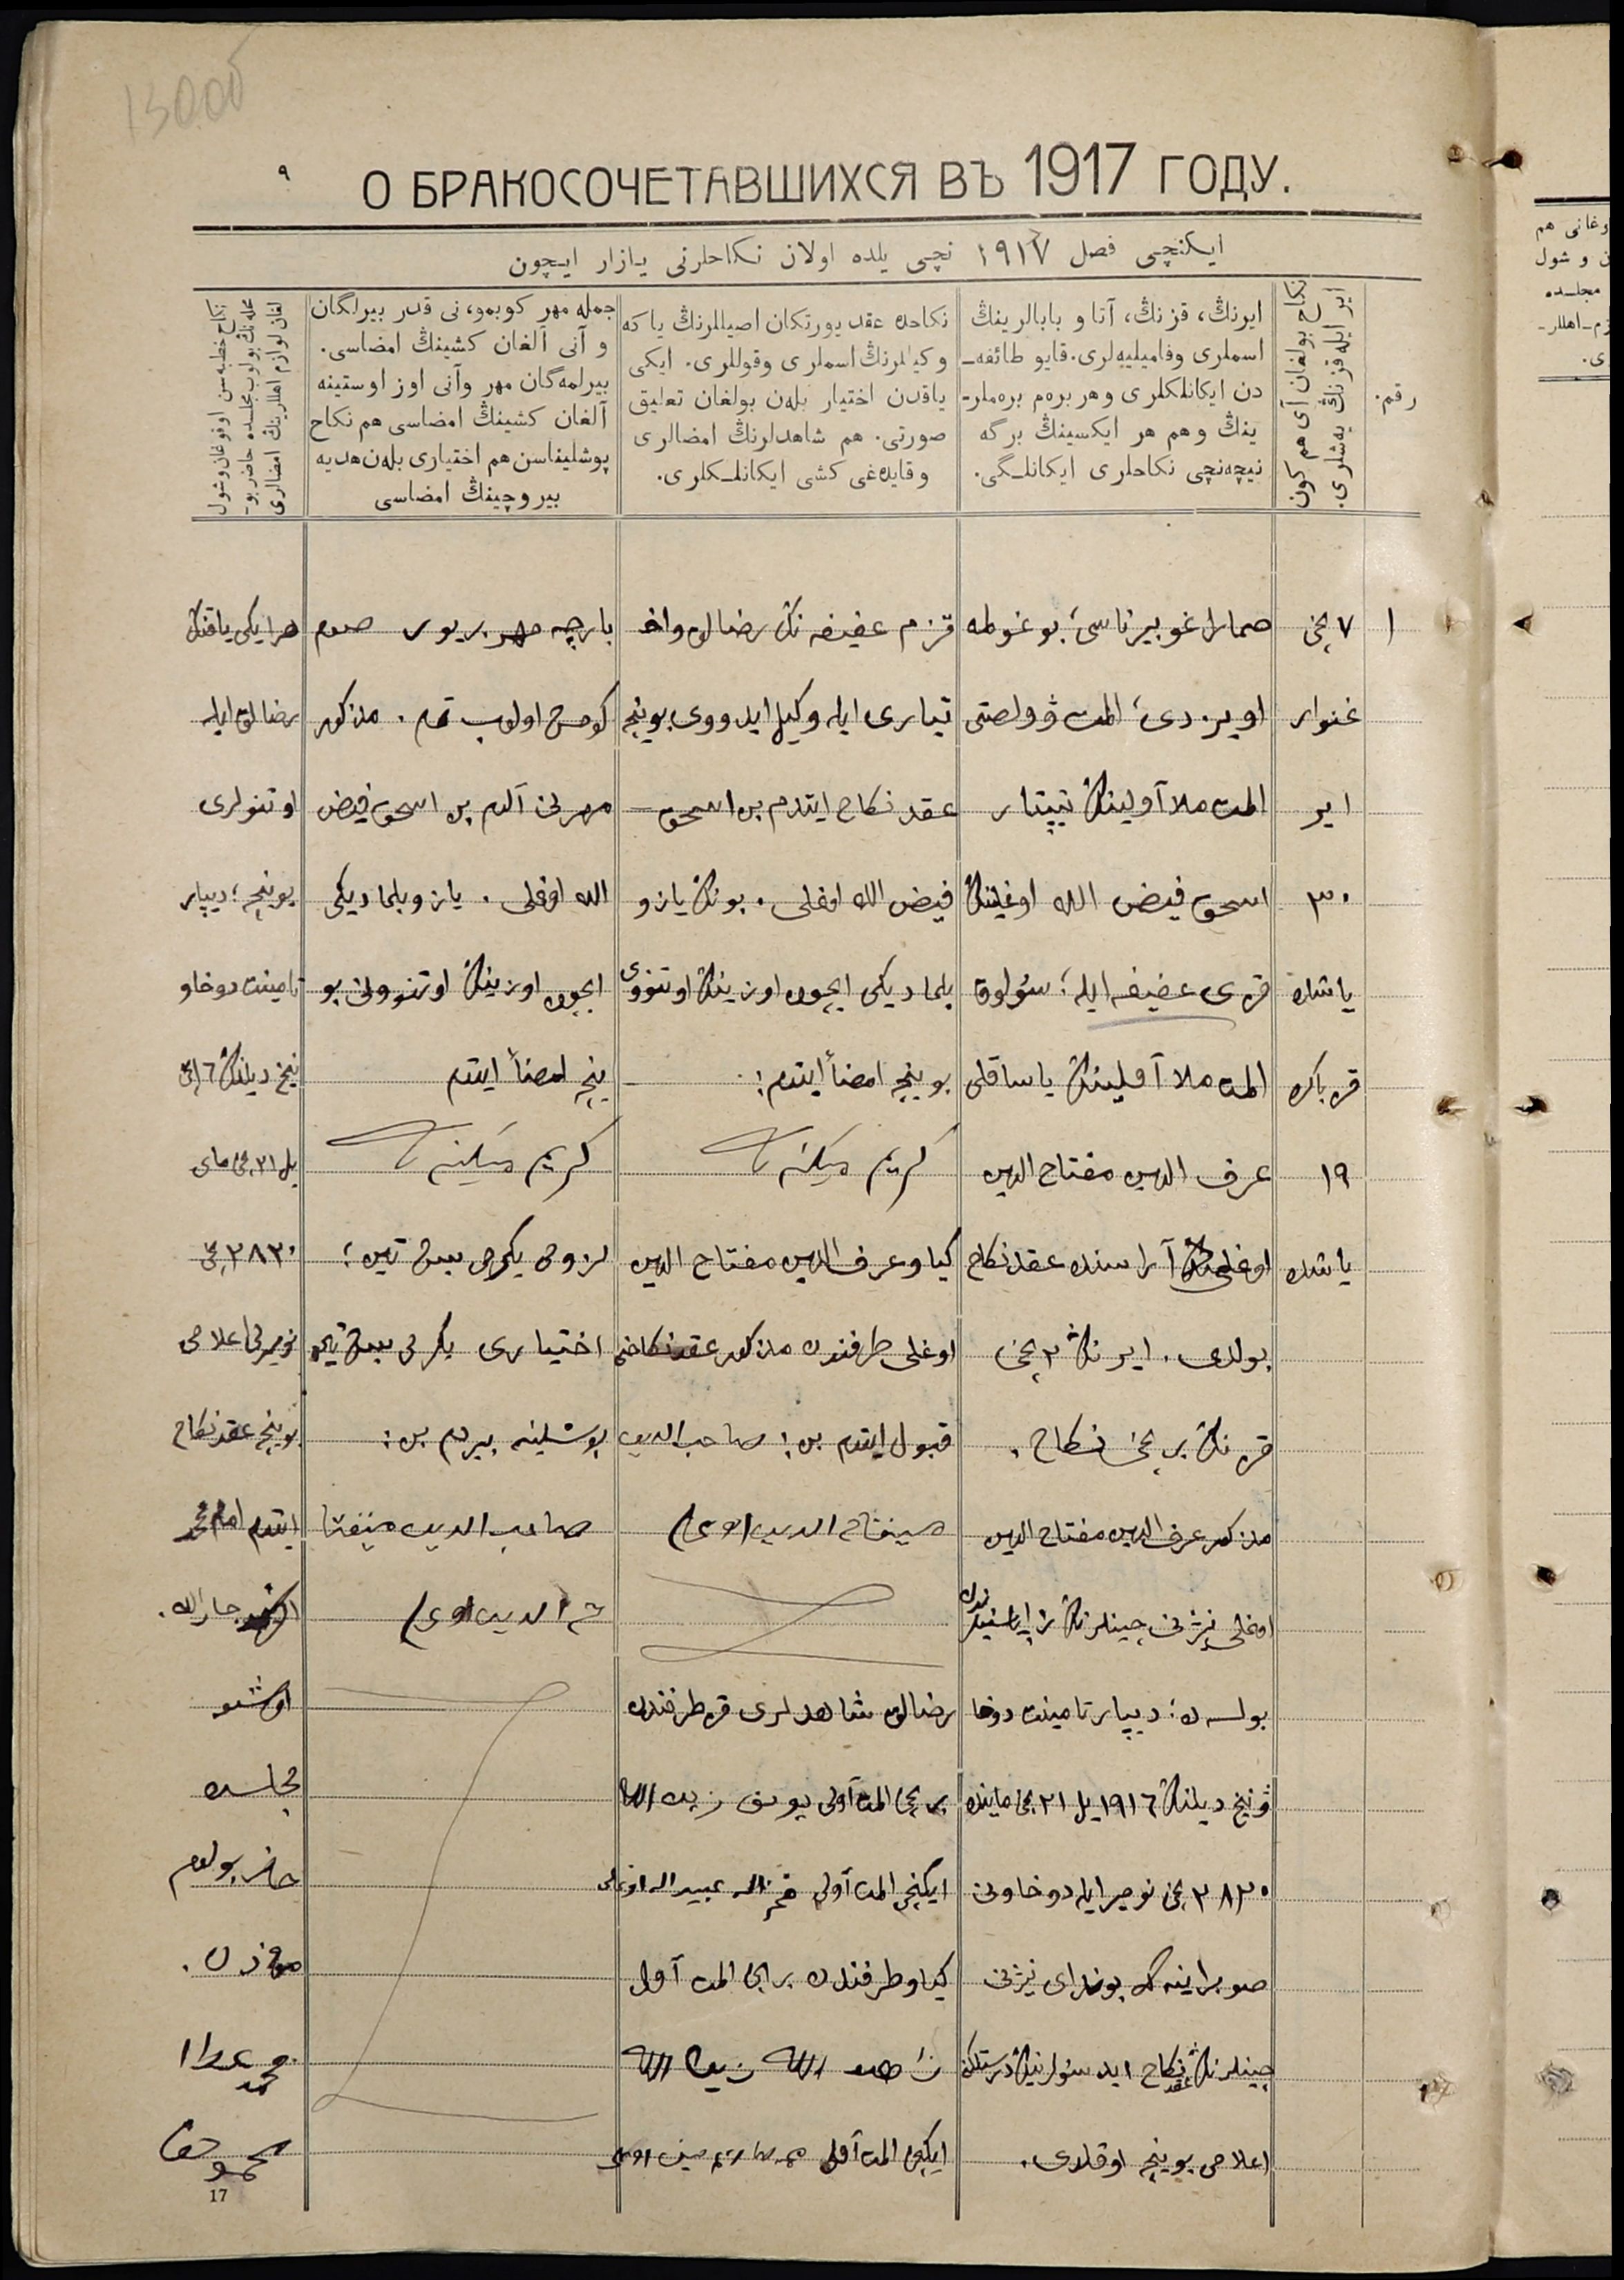 13000
٩
О БРАКОСОЧЕТАВШИХСЯ ВЪ 1917 ГОДУ.
ایکنچی فصل ١٩١٧ نچی یلده اولان نکاحلرنی یازار ایچون
رقم.
نکاح بولغان آی هم کون
ایر ایله قزنڭ یه‌شلری.
ایرنڭ، قزنڭ، آتا و بابالرینڭ
اسملری وفامیلییه‌لری. قایو طائفه‌ـ
دن ایکانلکلری و هر بره‌م بره‌ملرـ
ینڭ و هم هر ایکسینڭ برگه
نیچه‌نچی نکاحلری ایکانلـگی.
نکاحده عقد یورتکان اصیللرنڭ یا که
و کیللرنڭ اسملری وقوللری. ایکی
یاقدن اختیار بله‌ن بولغان تعلیق
صورتی. هم شاهدلرنڭ امضالری
وقایده‌غی کشی ایکانلـکلری.
جمله مهر کوبمو، نی قدر بیرلگان
و آنی آلغان کشینڭ امضاسی.
بیرلمه‌گان مهر وآنی اوز اوستینه
آلغان کشینڭ امضاسی هم نکاح
پوشلیناسن هم اختیاری بله‌ن هدیه
بیروچینڭ امضاسی
نکاح خطبه‌سن اوقوغان وشول
محله‌نڭ بولوب مجلسده حاضر بوـ
لغان لوازم اهللرینڭ امضالری
١
٧ نچی
غنوار
ایر
٣٠
یاشده
قز باکره
١٩
یاشده
صمارا غوبیرناسی؛ بوغولمه
اویزدی؛ المت ڤولصتی
المت ملا آولینڭ تیپتار
اسحق فیض الله اوغلینڭ
قزی عفیفه ایله؛ سؤلوق
المت ملا آولینڭ یاساقلی
عرف الدین مفتاح الدین
اوغلینڭ آراسنده عقد نکاح
بولدی. ایرنڭ ٢ نچی
قزنڭ برنچی نکاح.
مذکور عرف الدین مفتاح الدین
اوغلی نیژنی چینلرنڭ زاپاسیندن
بولسه ده؛ دیپارتامینت دوخا
ڤنیخ دیلنڭ ١٩١٦ یل ٢١ نچی ماینده
٢٨٢٠ نچی نومیر ایله دوخاونی
صوبرانیه گه بوندای نیژنی
چینلرنڭ عقد نکاح ایدسؤلرینڭ درستلکن
اعلامی بوینچه اوقلدی.
قزم عفیفه نڭ رضالق واخ
تیاری ایله وکیل ایدووی بوینچه
عقد نکاح ایتدم بن اسحق
فیض الله اوغلی. بونڭ یازو
بلمادیکی ایچون اوزینڭ اوتنووی
بوینچه امضأ ایتدم؛
کریم
کیاو عرف الدین مفتاح الدین
اوغلی طرفندن مذکور عقد نکاحنی
قبول ایتدم بن؛ صاحب الدین
میفتاح الدین اوغلی
رضالق شاهدلری قز طرفندن
برنچی المت آولی
ایکنچی المت آولی عبید الله اوغلی
کیاو طرفندن برنچی المت آولی
ایکنچی المت آولی
بارچه مهر بر یوز صوم
کومش اولوب تمام. مذکور
مهرنی آلدم بن اسحق فیض
الله اوغلی. یازو بلمادیکی
ایچون اوزینڭ اوتنووی بو
ینچه امضأ ایتدم
کریم
لزومی یکرمی بیش تین؛
اختیاری یکرمی بیش تین
پوشلینه بیردم بن؛
صاحب الدین میفتا
ح الدین اوغلی
هر ایکی یاقنڭ
رضالق ایله
اوتنولری
بوینچه؛ دیپار
تامینت دوخاو
نیخ دیلنڭ ١٦ نچی
یل ٢١ نچی مای
٢٨٢٠ نچی
نومیرلی اعلامی
بوینچه عقد نکاح
ایتدم امام محمد
جارالله.
اوشبو
مجلسده
حاضر بولدم
مؤذن.
محمد عطا
17